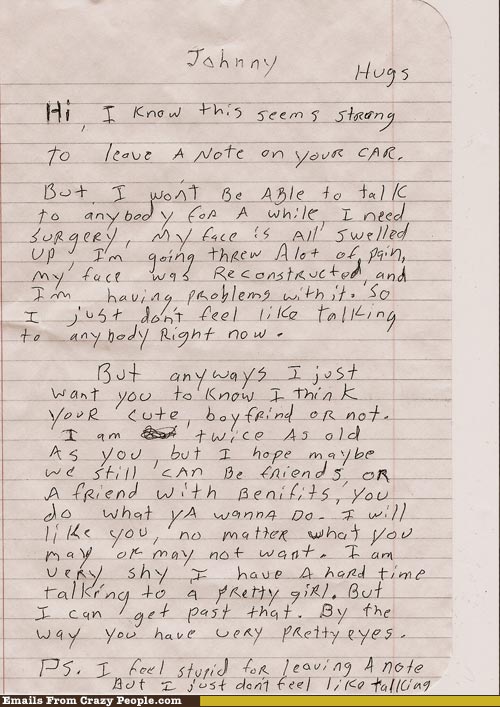 Johnny
Hugs
Hi, I know this seems strang
to leave A Note on your CAR.
But, I won't Be ABle to talk
to anybody for A while, I need
surgery, my face is All swelled
up, I'm going threw Alot of pain,
my face was Reconstructed, and
I'm having problems with it. So
I just don't feel like talking
to anybody Right now.
But anyways I just
want you to know I think
your cute, boyfrind or not.
I am twice As old
As you, but I hope maybe
we still can Be friends, or
A friend with Benifits, you
do what ya wanna Do. I will
like you, no matter what you
may or may not want. I am
very shy I have A hard time
talking to a pretty girl. But
I can get past that. By the
way you have very pretty eyes.
PS. I feel stupid for leaving A note
But I just dont feel like talking
Emails From Crazy People.com